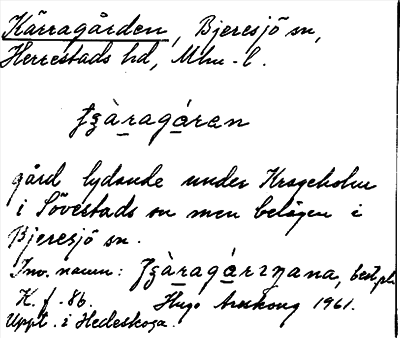 Kärragården, Bjeresjö sn,
Herrestads hd, Mhu-l.
gård lydande under Krageholm
i Sövestads sn men belägen i
Bjeresjö sn.
Inv. namn: best. pl.
K. f. -86. Hugo Areskoug 1961.
Uppt. i Hedeskoga.